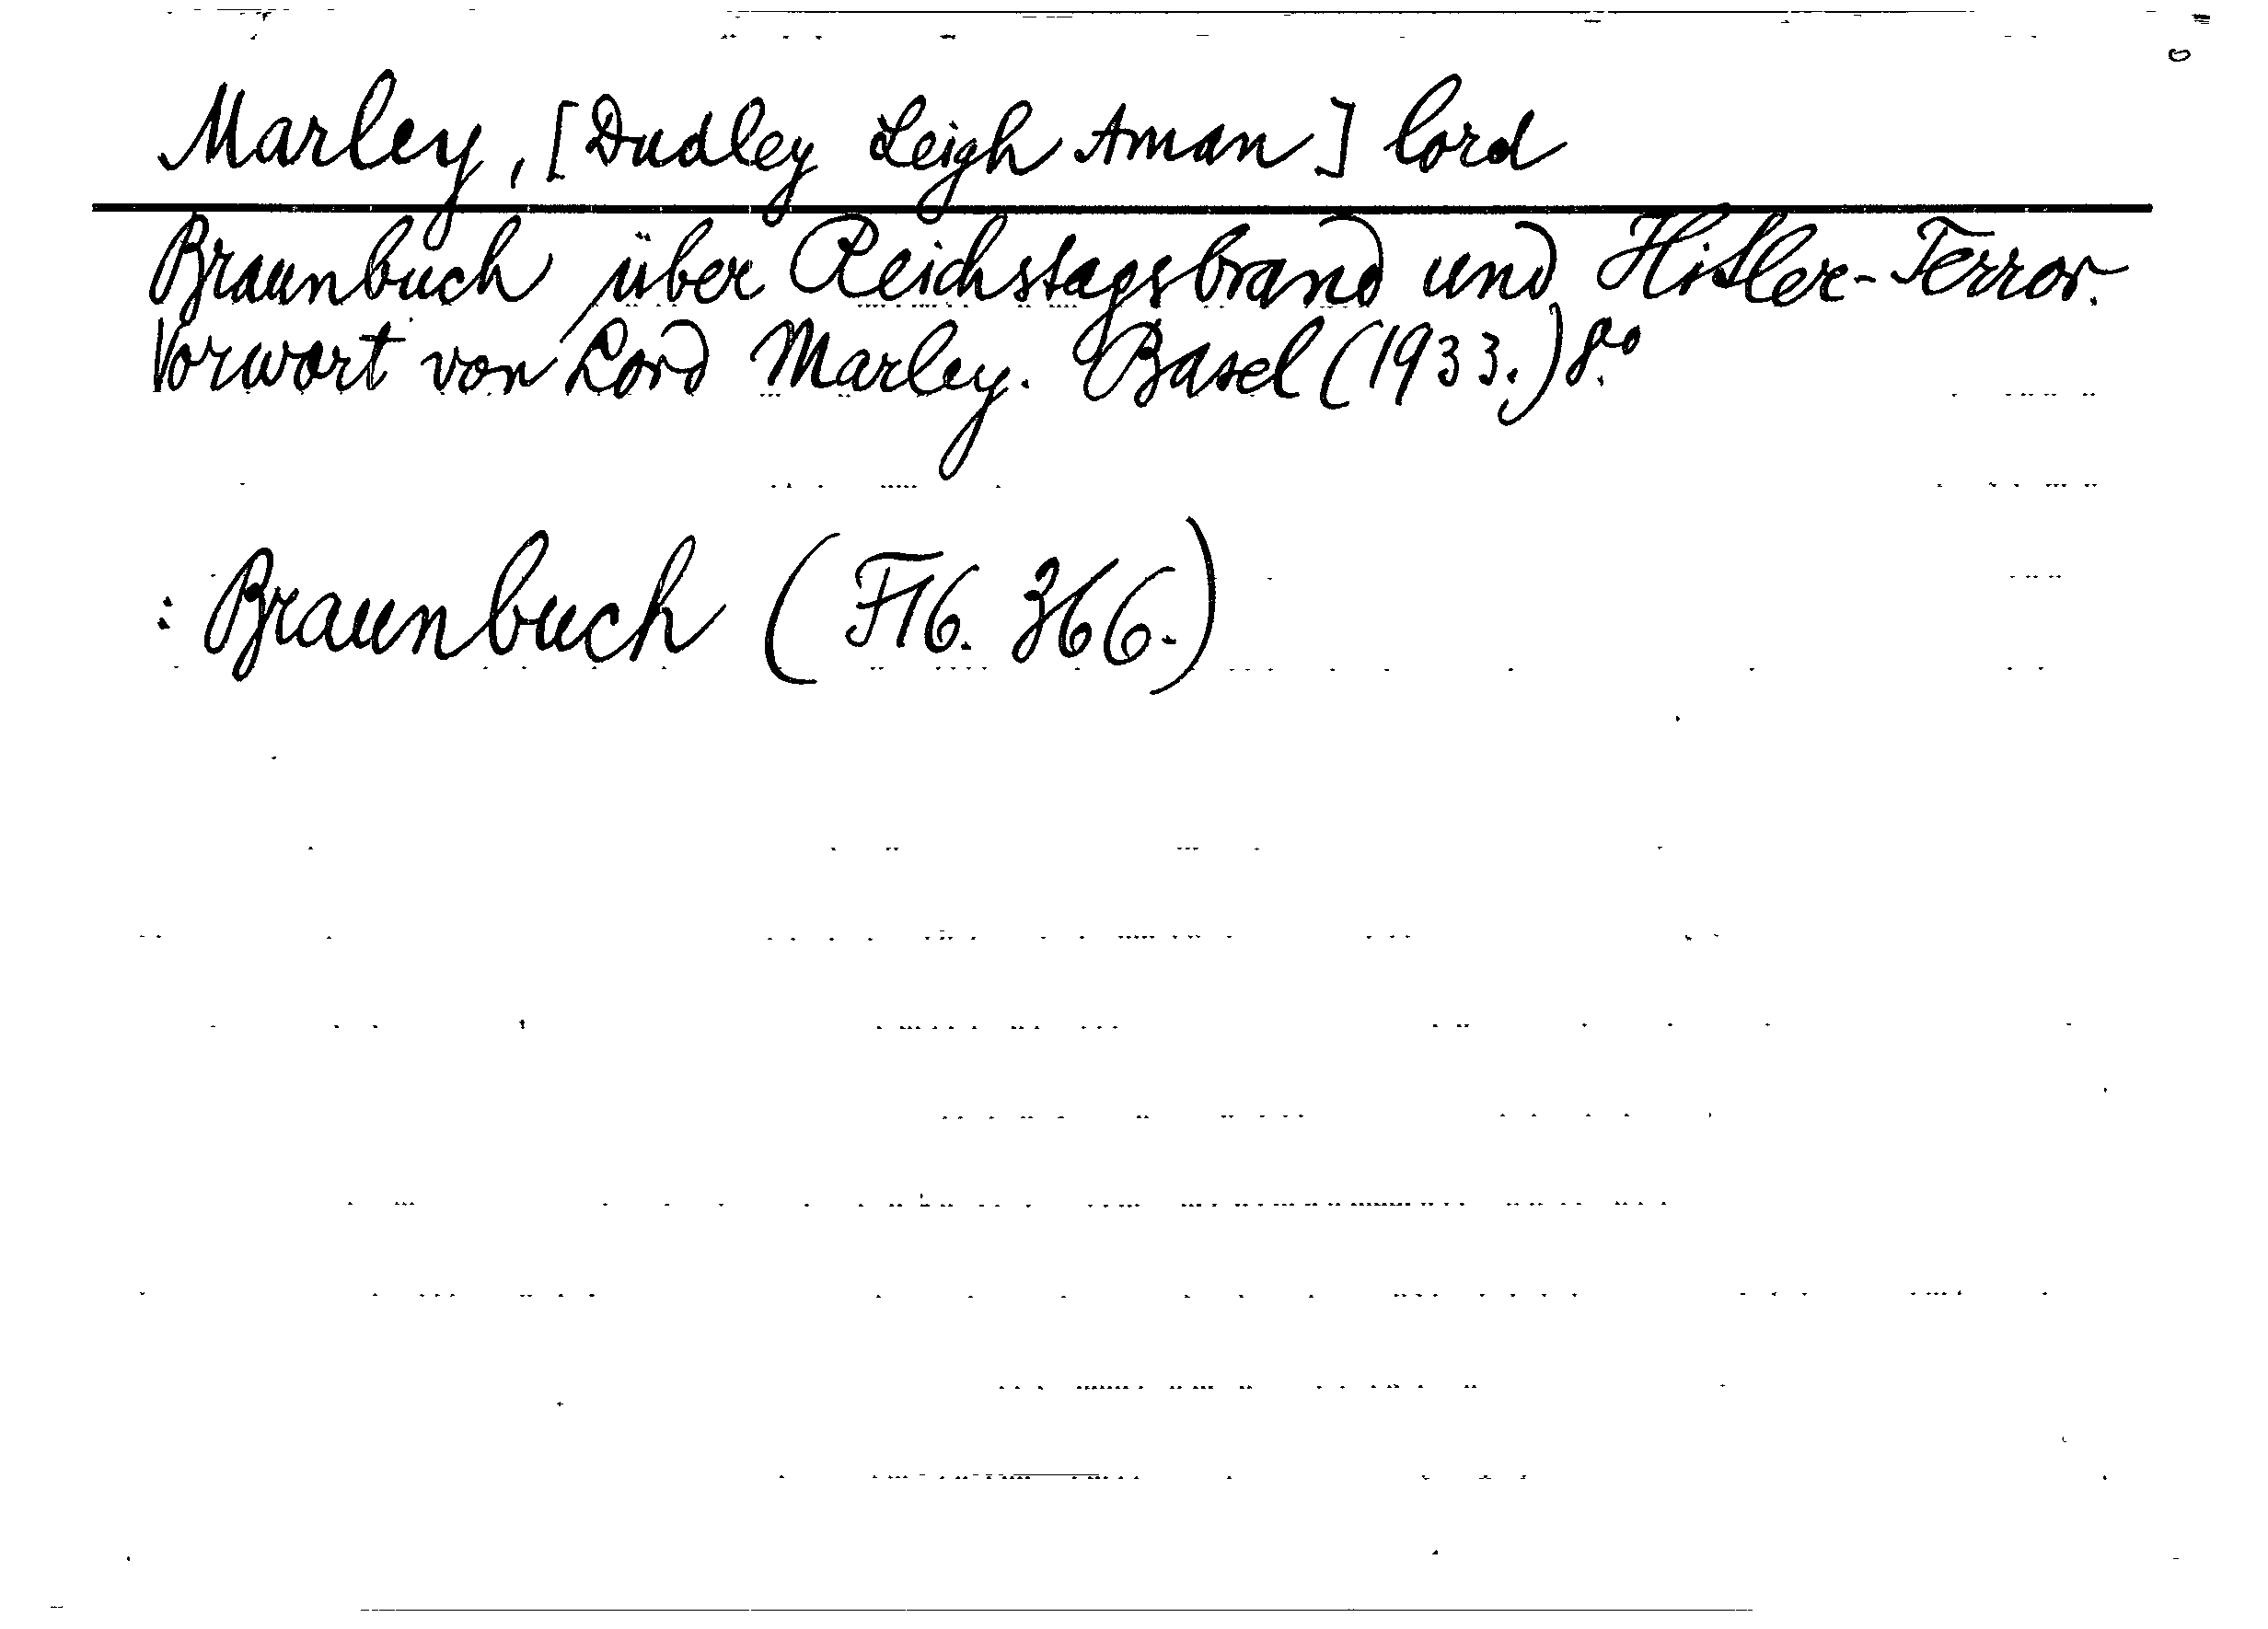 Marley, [Dudley Leigh Aman] lord
Braunbuch über Reichstagsbrand und Hitler-Terror.
Vorwort von Lord Marley. Basel (1933.) 8.o
: Braunbuch (F16. 366.)